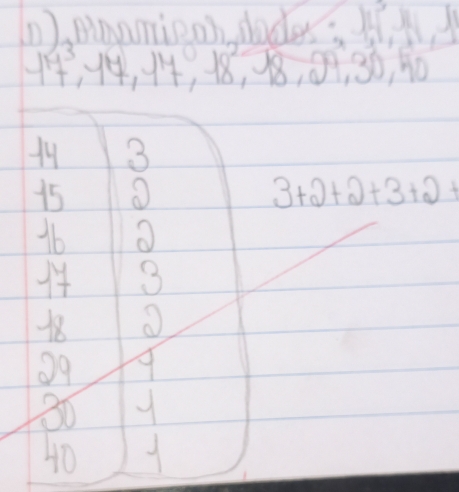 a) organizar dados: 14³, 14, 14
17³, 17, 17, 18², 18, 29, 30, 40
14 3
15 2
3+2+2+3+2+
16 2
17 3
18 2
29 1
30 1
40 1